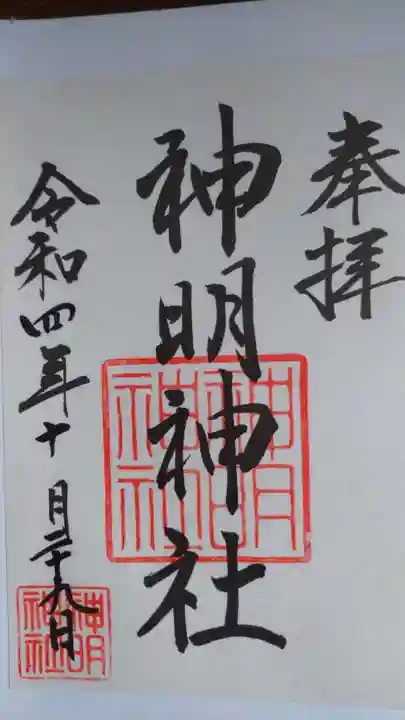 奉拝
神明神社
神明神社
令和四年十月二十九日
神明神社